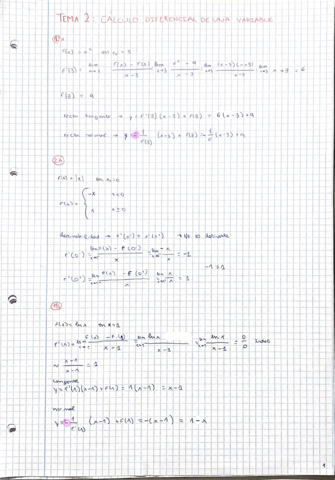 TEMA 2: CALCULO DIFERENCIAL DE UNA VARIABLE
f(x) = x² en x₀ = 3
f'(3) = lim x→3 f(x) - f(3) / x-3 = lim x→3 x² - 9 / x-3 = lim x→3 (x-3)(x+3) / x-3 = lim x→3 x+3 = 6
f(3) = 9
recta tangente → y = f'(3)(x-3) + f(3) = 6(x-3)+9
recta normal → y = -1/f'(3) (x-3) + f(3) = -1/6 (x-3)+9
f(x) = |x| en x₀=0
f(x) = { -x x<0
x x≥0
derivabilidad → f'(0⁻) = f'(0⁺) → No es derivable
f'(0⁻) = lim x→0⁻ f(x) - f(0⁻) / x = lim x→0⁻ -x / x = -1
-1 ≠ 1
f'(0⁺) = lim x→0⁺ f(x) - f(0⁺) / x = lim x→0⁺ x / x = 1
f(x) = ln x en x=1
f'(1) = lim x→1 f(x) - f(1) / x-1 = lim x→1 ln x / x-1 = lim x→1 ln x / x-1 = 0/0
≈ x-1 / x-1 = 1
tangente
y = f'(1)(x-1) + f(1) = 1(x-1) = x-1
normal
y = -1/f'(1) (x-1) + f(1) = -(x-1) = 1-x
1